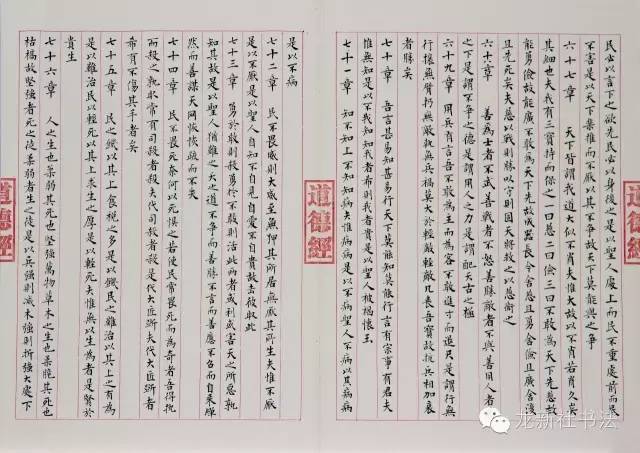 民必以言下之欲先民必以身後之是以聖人處上而民不重處前而民
不害是以天下樂推而不厭以其不爭故天下莫能與之爭
六十七章 天下皆謂我道大似不肖夫惟大故似不肖若肖久矣
其細也夫我有三寶持而保之一曰慈二曰儉三曰不敢為天下先慈故
能勇儉故能廣不敢為天下先故能成器長今舍慈且勇舍儉且廣舍後
且先死矣夫慈以戰則勝以守則固天將救之以慈衛之
六十八章 善為士者不武善戰者不怒善勝敵者不與善用人者
之下是謂不爭之德是謂用人之力是謂配天古之極
六十九章 用兵有言吾不敢為主而為客不敢進寸而退尺是謂行無
行攘無臂扔無敵執無兵禍莫大於輕敵輕敵幾喪吾寶故抗兵相加哀
者勝矣
七十章 吾言甚易知甚易行天下莫能知莫能行言有宗事有君夫
惟無知是以不我知知我者希則我者貴是以聖人被褐懷玉
七十一章 知不知上不知知病夫惟病病是以不病聖人不病以其病病
道德經
是以不病
七十二章 民不畏威則大威至無狎其所居無厭其所生夫惟不厭
是以不厭是以聖人自知不自見自愛不自貴故去彼取此
七十三章 勇於敢則殺勇於不敢則活此兩者或利或害天之所惡孰
知其故是以聖人猶難之天之道不爭而善勝不言而善應不召而自來繟
然而善謀天網恢恢疏而不失
七十四章 民不畏死奈何以死懼之若使民常畏死而為奇者吾得執
而殺之孰敢常有司殺者殺夫代司殺者殺是代大匠斲夫代大匠斲者
希有不傷其手者矣
七十五章 民之饑以其上食稅之多是以饑民之難治以其上之有為
是以難治民之輕死以其上求生之厚是以輕死夫惟無以生為者是賢於
貴生
七十六章 人之生也柔弱其死也堅強萬物草木之生也柔脆其死也
枯槁故堅強者死之徒柔弱者生之徒是以兵強則滅木強則折強大處下
道德經
龙新社书法